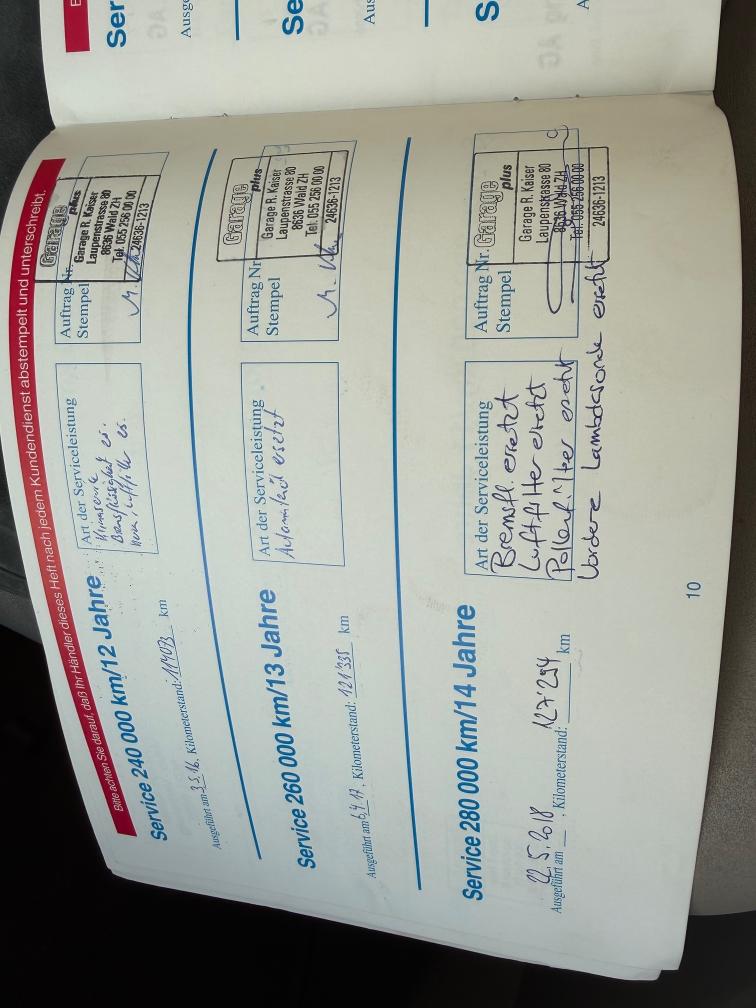 Bitte achten Sie darauf, daß Ihr Händler dieses Heft nach jedem Kundendienst abstempelt und unterschreibt.
Service 240 000 km/12 Jahre
Ausgeführt am 3.5.16. Kilometerstand: 114073 km
Art der Serviceleistung
Bremsflüssigkeit es.
Auftrag Nr.
Stempel
Garage
plus
Garage R. Kaiser
Laupenstrasse 80
8636 Wald ZH
Tel. 055 256 00 00
24636-1213
Service 260 000 km/13 Jahre
Ausgeführt am 6.4.17. Kilometerstand: 121'335 km
Art der Serviceleistung
ersetzt
Auftrag Nr.
Stempel
Garage
plus
Garage R. Kaiser
Laupenstrasse 80
8636 Wald ZH
Tel. 055 256 00 00
24636-1213
Service 280 000 km/14 Jahre
22.5.2018 127'294
Ausgeführt am . Kilometerstand: km
Art der Serviceleistung
Bremsfl. ersetzt
Luftfilter ersetzt
Pollenfilter ersetzt
Vordere Lambdasonde ersetzt
Auftrag Nr.
Stempel
Garage
plus
Garage R. Kaiser
Laupenstrasse 80
8636 Wald ZH
Tel. 055 256 00 00
24636-1213
10